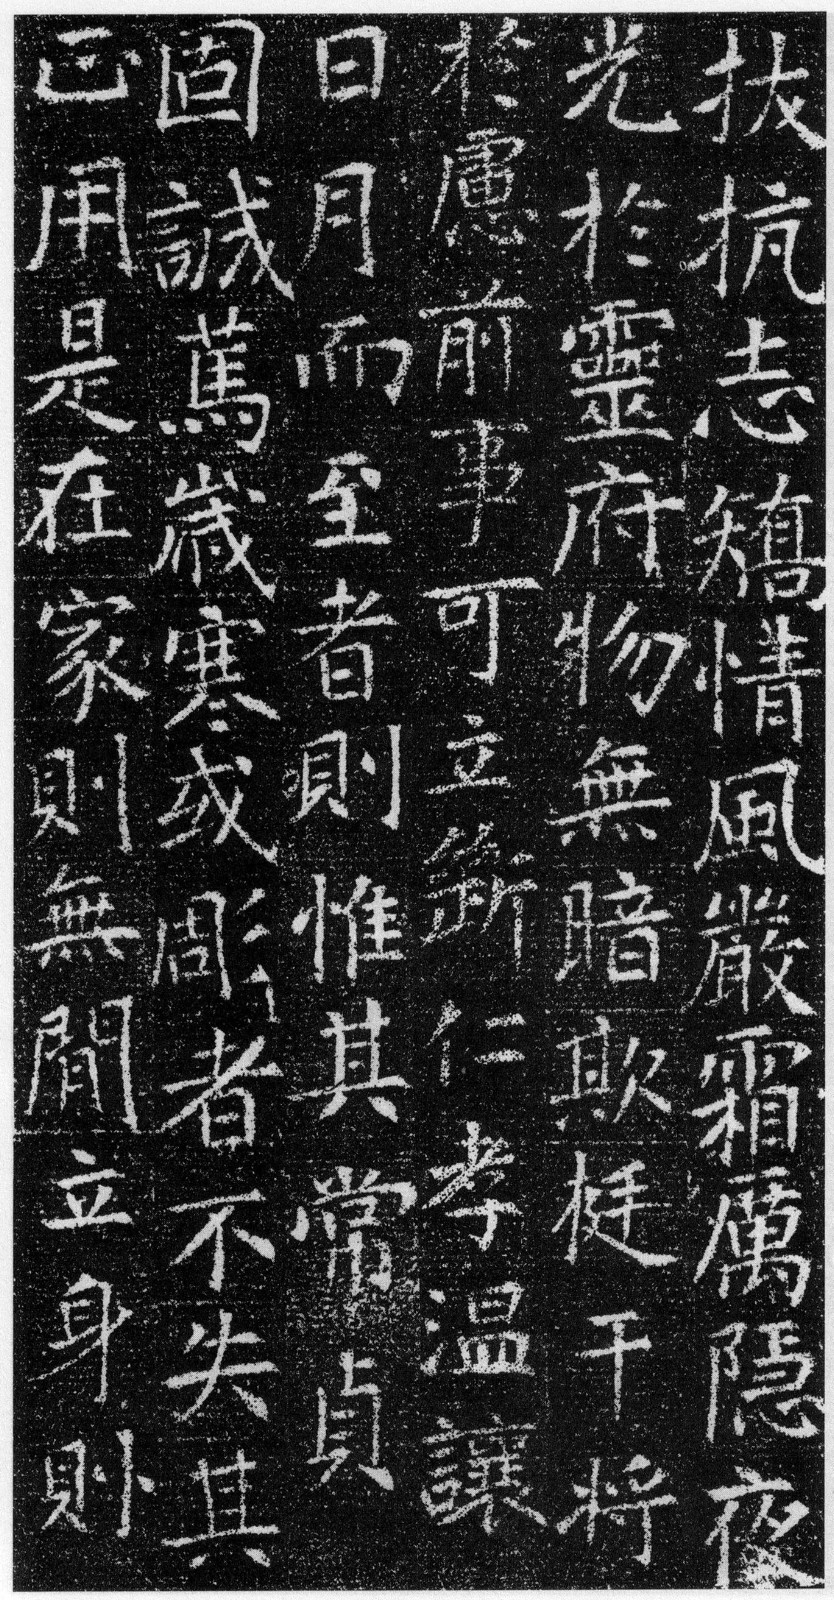 拔抗志矯情風嚴霜厲隱夜
光於靈府物無暗欺挺干將
於慮前事可立斷仁孝温讓
日月而至者則惟其常貞
固誠蔦歲寒或彫者不失其
正用是在家則無間立身則